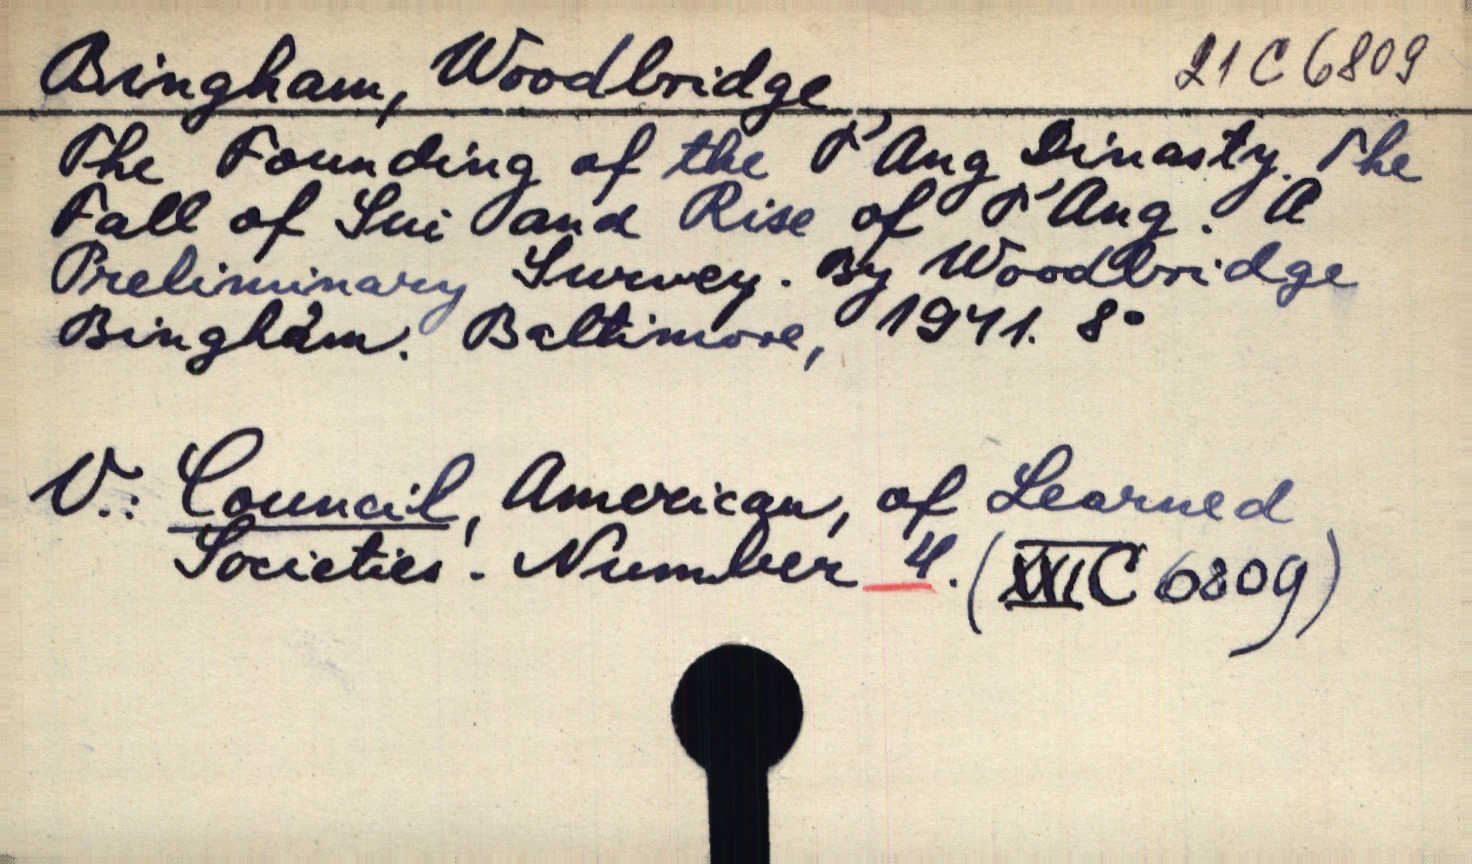 Bingham, Woodbridge 21 C 6809
The Founding of the T'Ang Dinasty. The
Fall of Sui and Rise of T'Ang. A
Preliminary Survey. By Woodbridge
Bingham. Baltimore, 1941. 8°
V.: Council, American, of Learned
Societies. Number 4. (XXI C 6809)